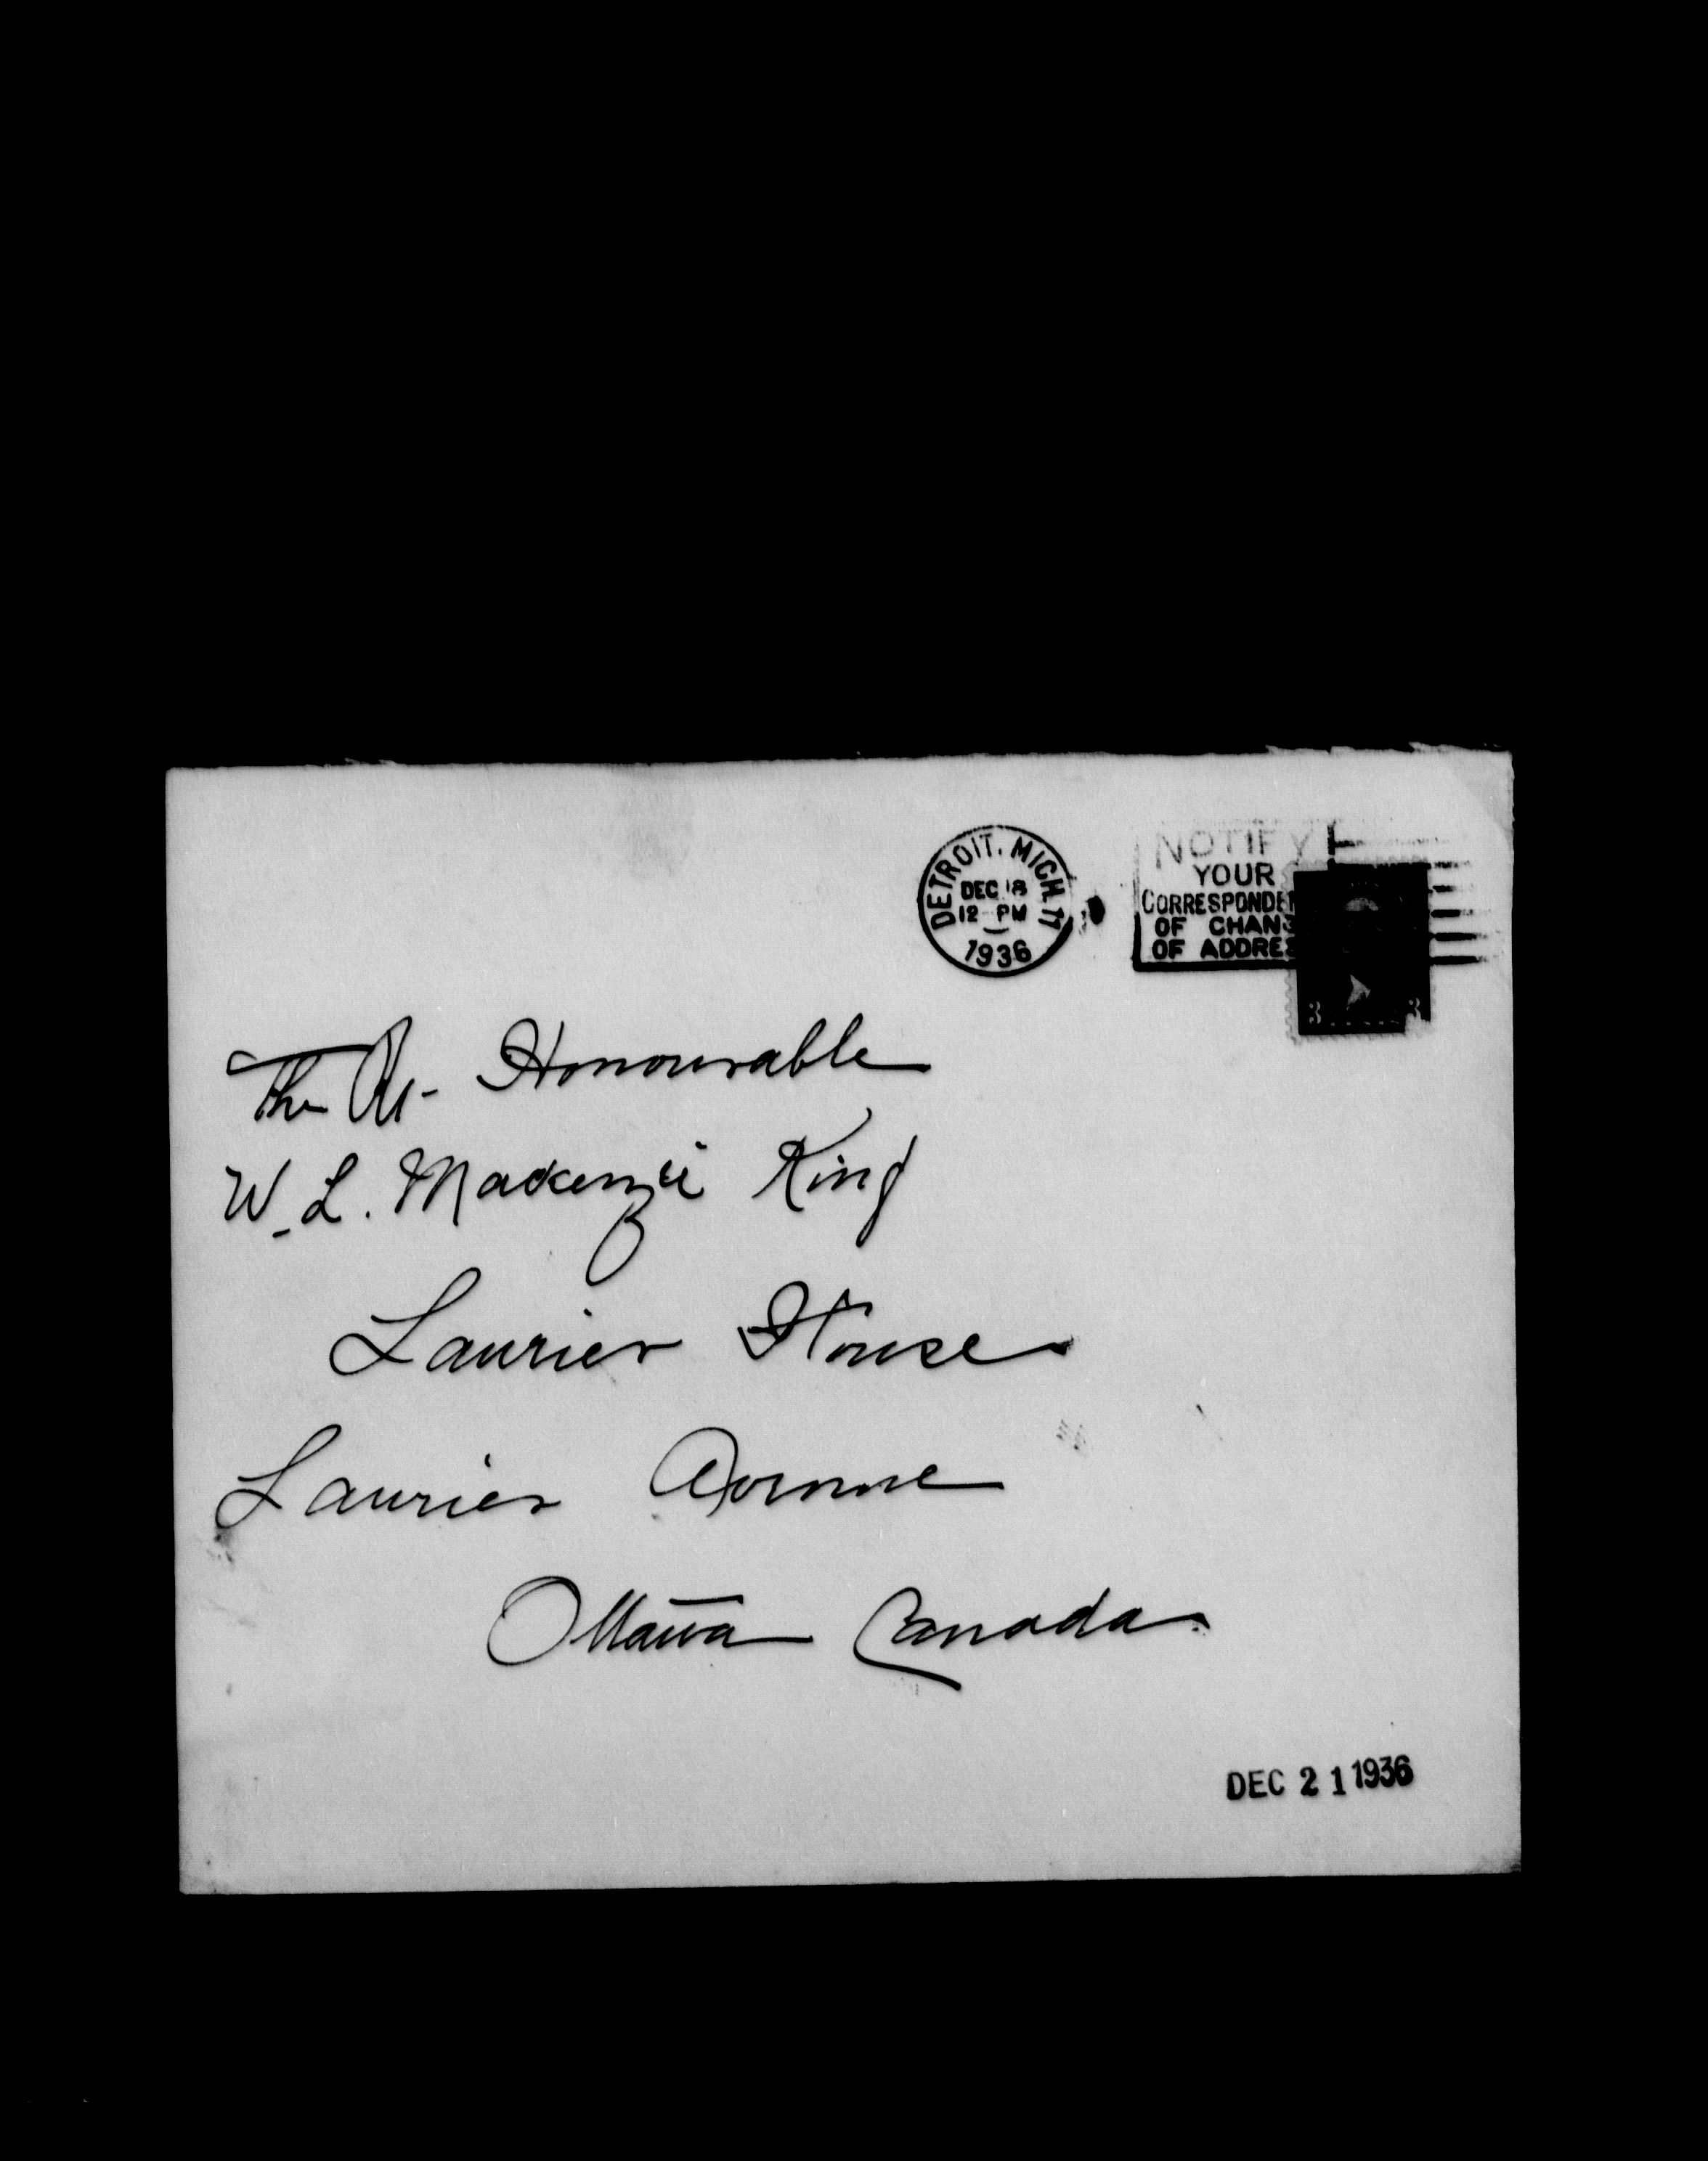 DETROIT, MICH. 17
DEC 18
12 PM
1936
NOTIFY
YOUR
CORRESPONDEN
OF CHANG
OF ADDRES
3 3
The Rt. Honourable
W. L. Mackenzie King
Laurier House
Laurier Avenue
Ottawa Canada
DEC 21 1936